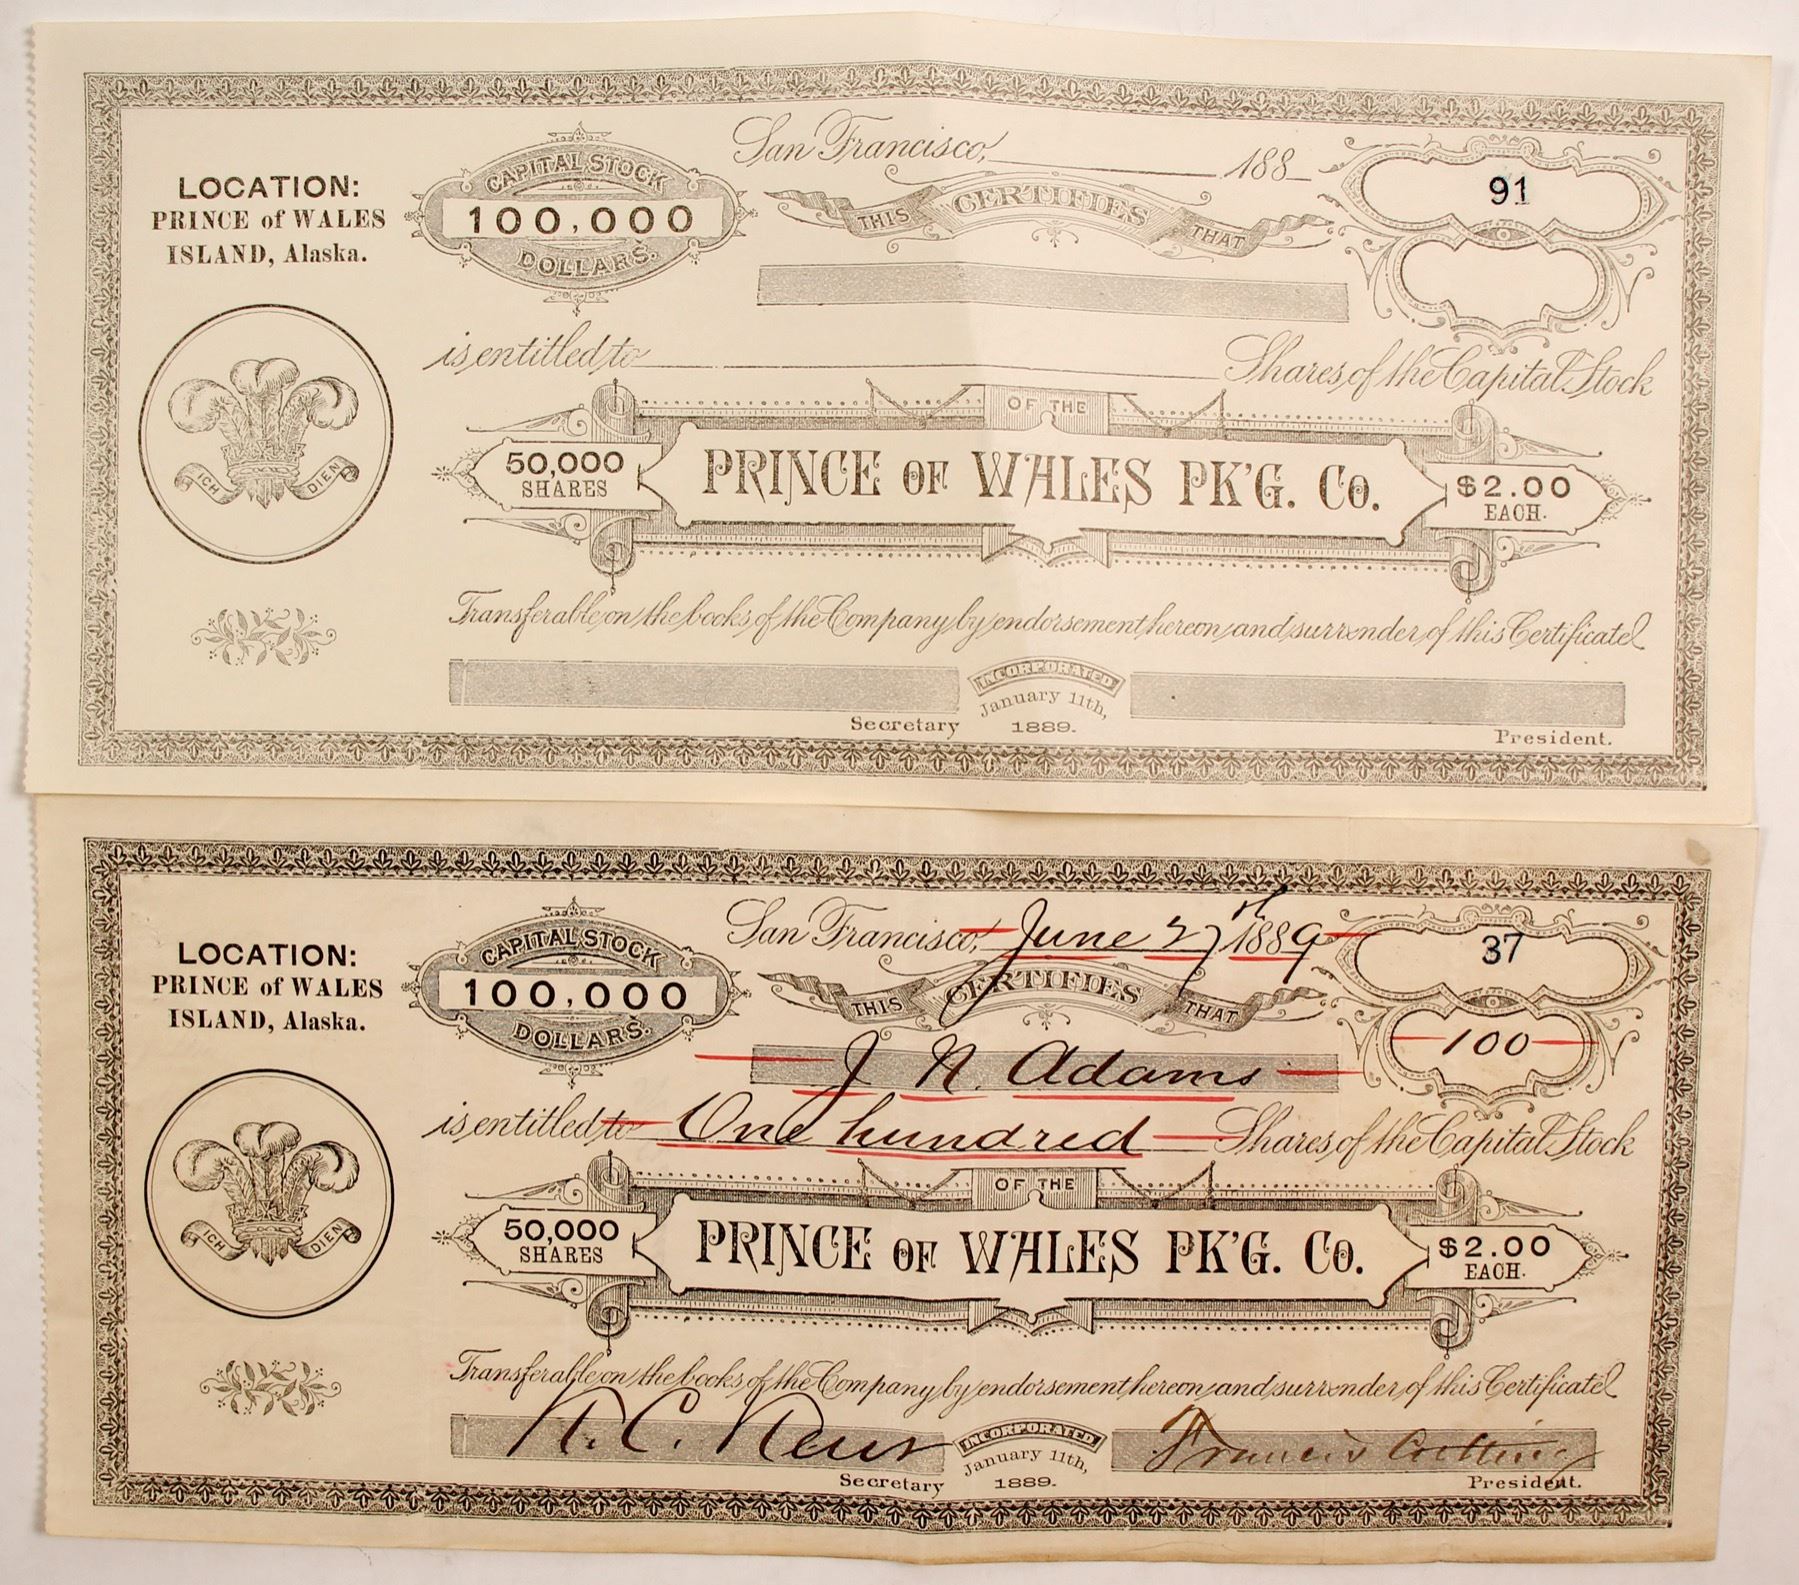 San Francisco, 188
91
LOCATION:
PRINCE of WALES
ISLAND, Alaska.
CAPITAL STOCK
100,000
DOLLARS.
THIS CERTIFIES THAT
is entitled to Shares of the Capital Stock
OF THE
50,000
SHARES
PRINCE OF WALES PK'G. Co.
$2.00
EACH.
ICH DIEN
Transferable on the books of the Company by endorsement hereon and surrender of this Certificate
INCORPORATED
January 11th,
1889.
Secretary
President.
San Francisco, June 27th 1889
37
LOCATION:
PRINCE of WALES
ISLAND, Alaska.
CAPITAL STOCK
100,000
DOLLARS.
THIS CERTIFIES THAT
100
J N. Adams
is entitled to One hundred Shares of the Capital Stock
OF THE
50,000
SHARES
PRINCE OF WALES PK'G. Co.
$2.00
EACH.
ICH DIEN
Transferable on the books of the Company by endorsement hereon and surrender of this Certificate
C.
INCORPORATED
Francis
January 11th,
1889.
Secretary
President.